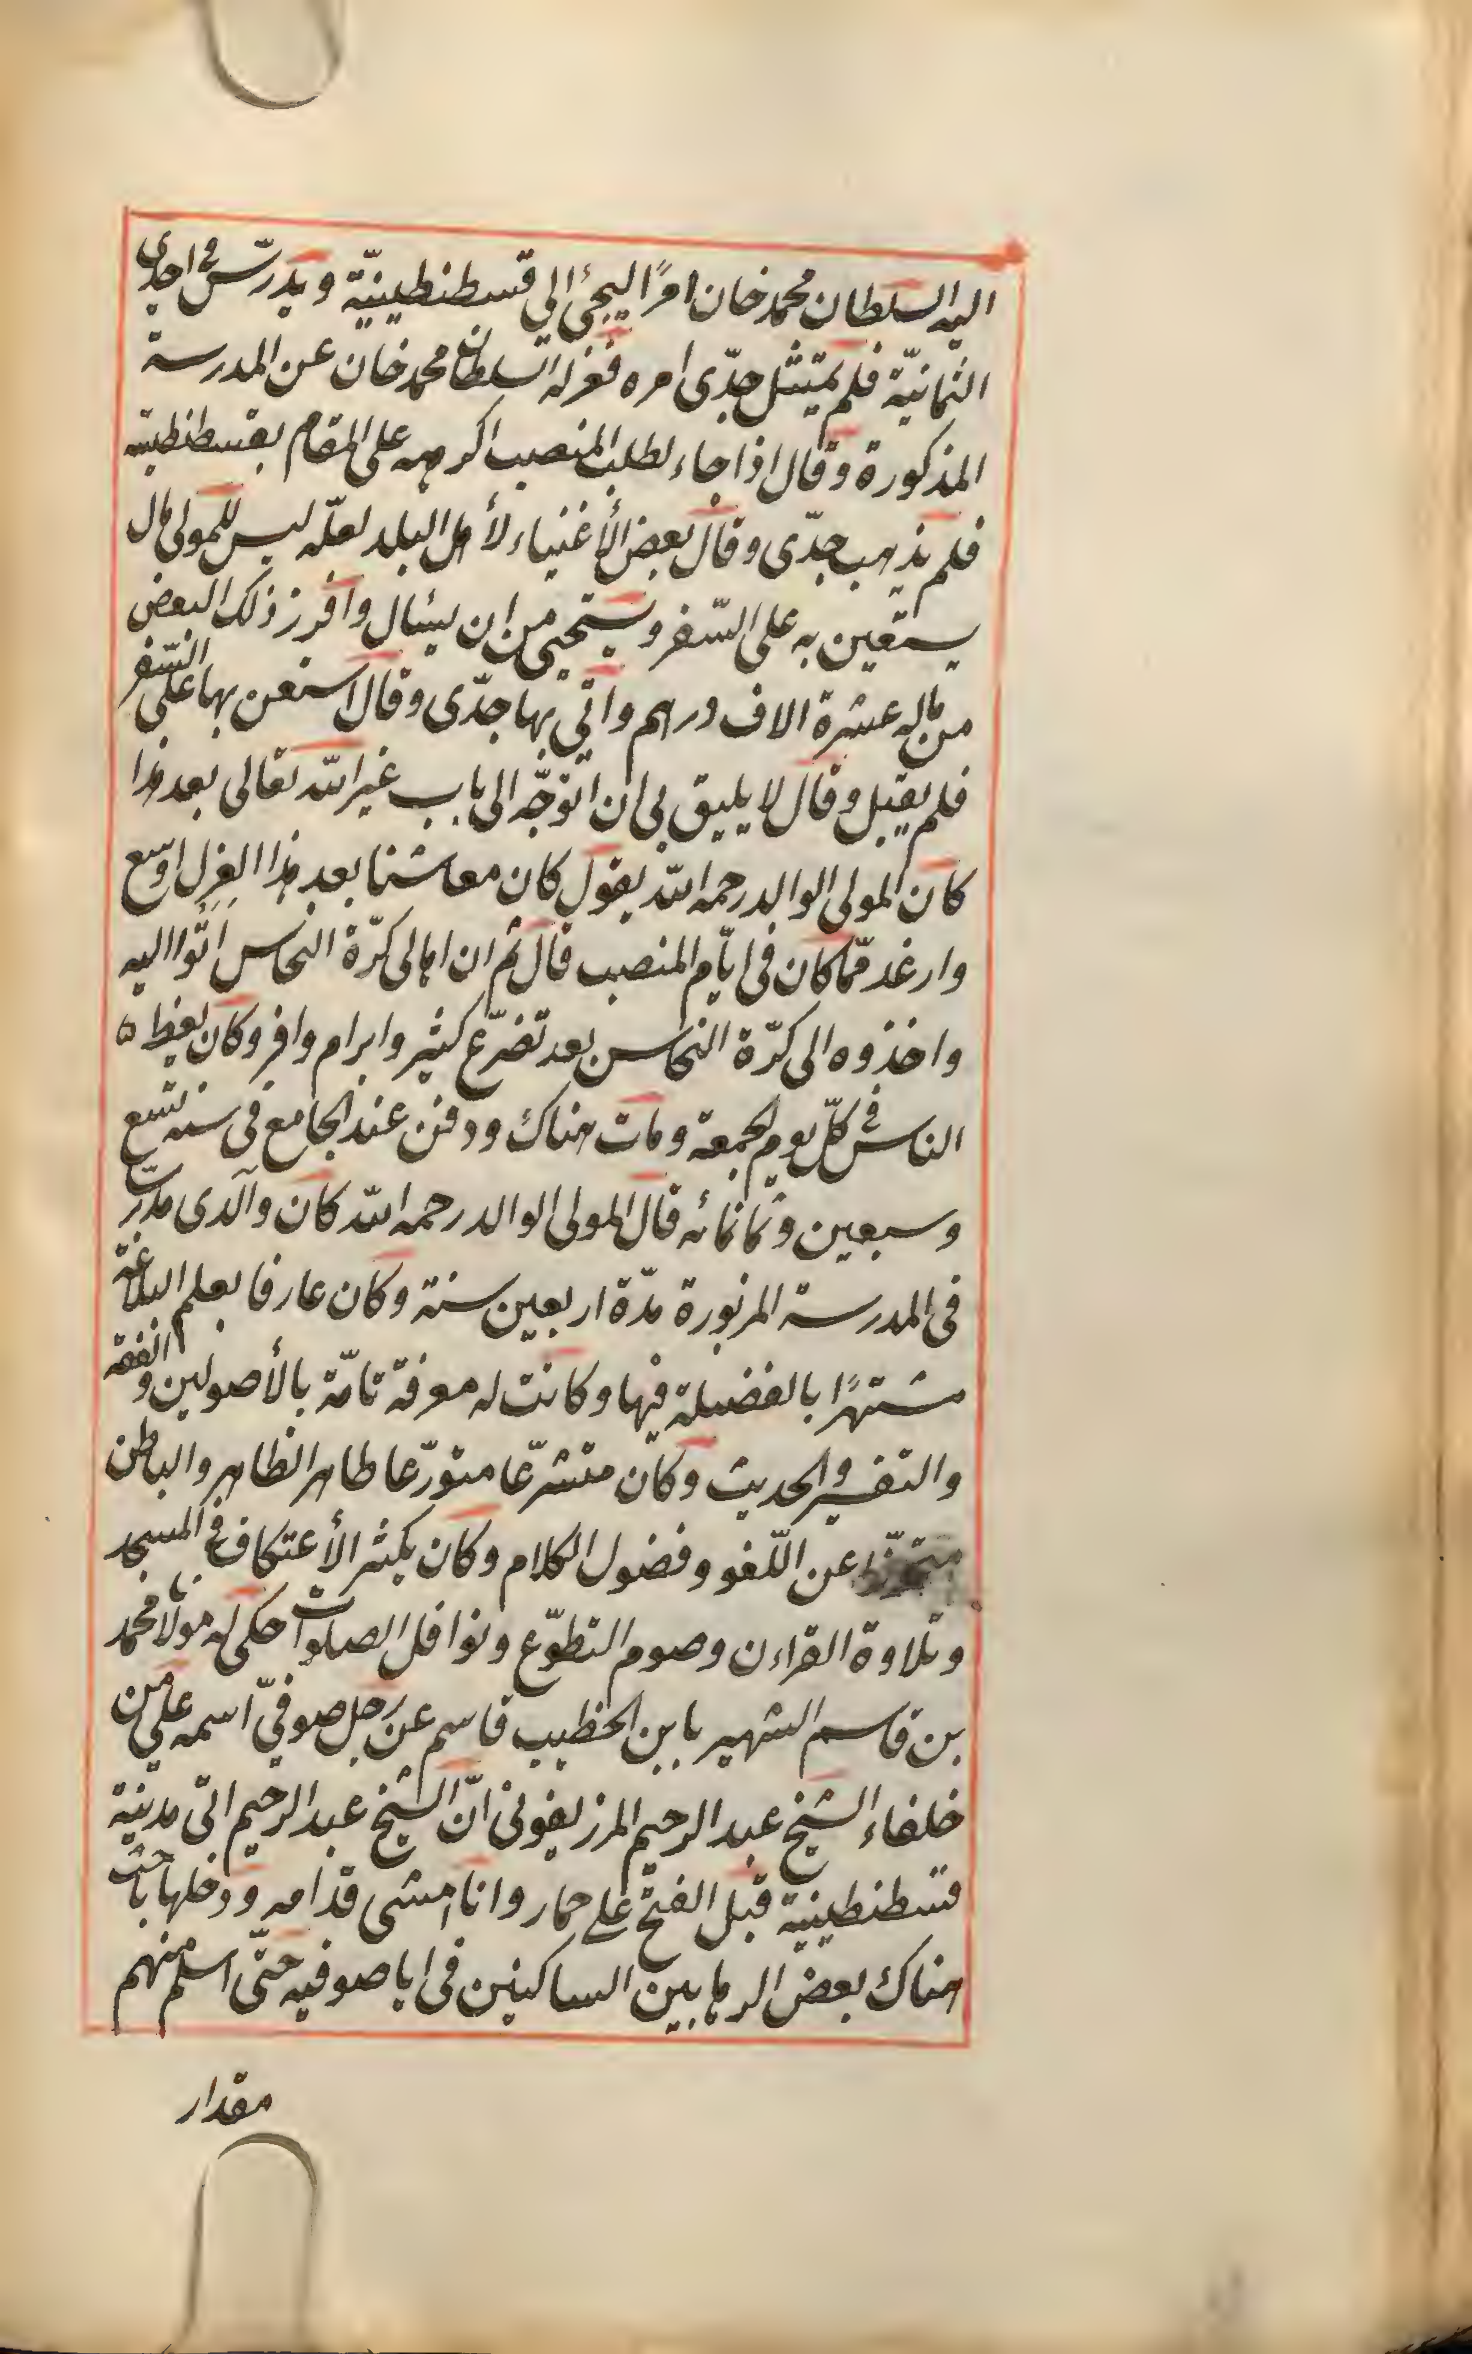 اليه السلطان محمد خان امرًا ليجئ الي قسطنطينيّة ويدرّس في احدى
الثمانيّة فلم يمتثل جدّى امره فعزله السلطان محمد خان عن المدرسة
المذكورة وقال اذا جاء لطلب المنصب اكرهه على المقام بقسطنطنية
فلم يذهب جدّى وقال بعض الأغنياء لأهل البلد لعلّه ليس للمولى مال
يستعين به على السّفر ويستحيى من ان يسئال وافرز ذلك البعض
من ماله عشرة الاف دراهم واتى بها جدّى وقال استعن بها على السّفر
فلم يقبل وقال لا يليق بى ان اتوجّه الى باب غير الله تعالى بعد هذا
كان المولى الوالد رحمه الله يقول كان معاشنا بعد هذا العزل اوسع
وارغد ممّا كان فى ايّام المنصب قال ثم ان اهالى كرّة النحاس اتوا اليه
واخذوه الى كرّة النحاس بعد تضرّع كثير وابرام وافر وكان يعظ ٥
الناس فى كلّ يوم الجمعة ومات هناك ودفن عند الجامع فى سنه تسع
وسبعين وثمانمائه قال المولى الوالد رحمه الله كان والدى مدرّسا
فى المدرسة المزبورة مدّة اربعين سنة وكان عارفا بعلم البلاغة
مشتهرًا بالفضيلة فيها وكانت له معرفة تامّة بالأصولين والفقه
والتفسير والحديث وكان متشرّعا متورّعا طاهر الظاهر والباطن
متحرّزا عن اللّغو وفضول الكلام وكان يكثر الأعتكاف فى المسجد
وتلاوة القراءن وصوم التطوّع ونوافل الصلوات حكى له مولانا محمد
بن قاسم الشهير بابن الخطيب قاسم عن رجل صوفىّ اسمه على من
خلفاء الشيخ عبد الرحيم المرزيفونى انّ الشيخ عبد الرحيم اتى مدينة
قسطنطينية قبل الفتح على حمار وانا امشى قدامه ودخلها باحث
هناك بعض الرهابين الساكنين فى اياصوفيه حتّى اسلم منهم
مقدار